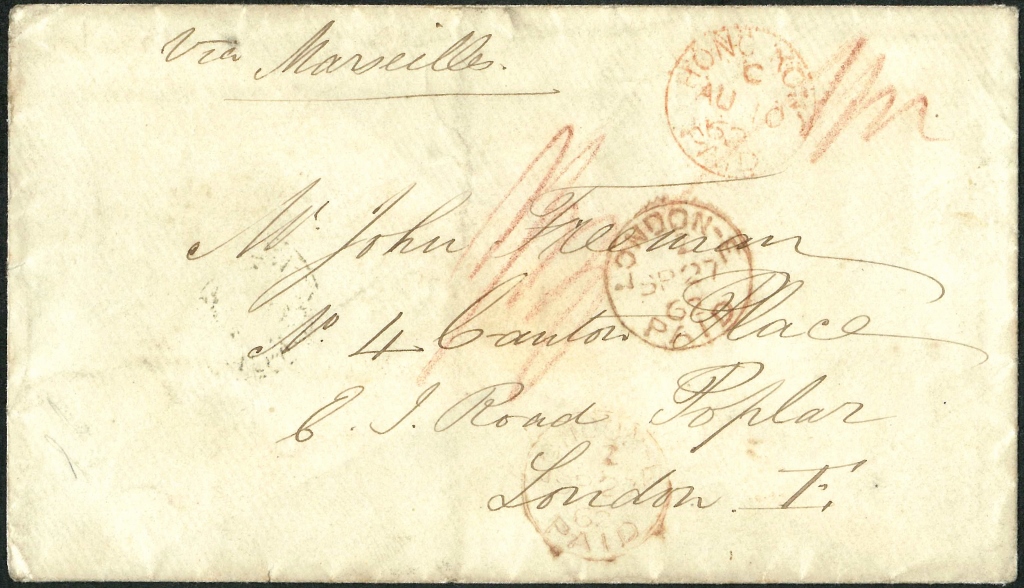 Via Marseilles.
HONG KONG
C
AU 10
PAID
Mr John Freeman
LONDON-E
SP 27
PAID
No 4 Canton Place
E. I. Road Poplar
London E.
PAID